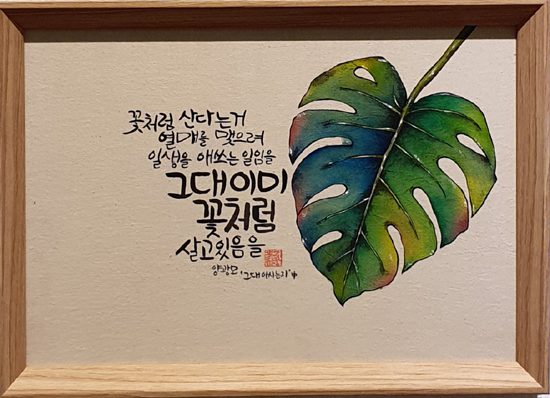 꽃처럼 산다는거
열매를 맺으려
일생을 애쓰는 일임을
그대 이미
꽃처럼
살고있음을
양광모, '그대 아시는지' 中